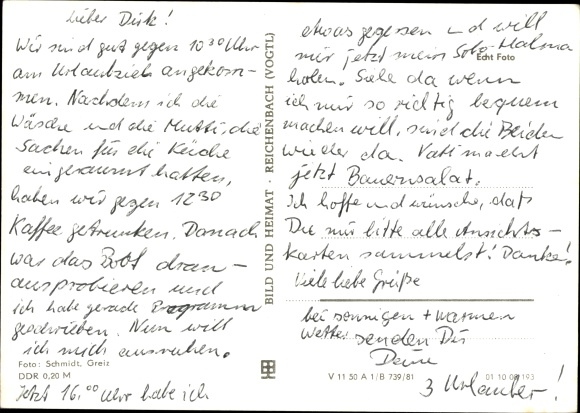 Lieber Dirk!
Wir sind gut gegen 10 30 Uhr
am Urlaubziel angekom-
men. Nachdem ich die
Wäsche und die Mutti, die
Sachen für die Küche
eingeräumt hatten,
haben wir gegen 12 30
Kaffee getrunken. Danach
war das Boot dran-
ausprobieren und
ich habe gerade
geschrieben. Nun will
ich mich ausruhen.
Foto: Schmidt, Greiz
DDR 0,20 M
Jetzt 16.00 Uhr habe ich
BILD UND HEIMAT · REICHENBACH (VOGTL)
etwas gegessen und will
mir jetzt mein Solo-Halma
Echt Foto
holen. Siehe da wenn
ich mir so richtig bequem
machen will, sind die Beiden
wieder da. Vati macht
jetzt Bauernsalat.
Ich hoffe und wünsche, daß
Du mir bitte alle Ansichts-
karten sammelst! Danke!
Viele liebe Grüße
bei sonnigen + warmen
Wetter senden Dir
Deine
V 11 50 A 1/B 739/81
3 Urlauber!